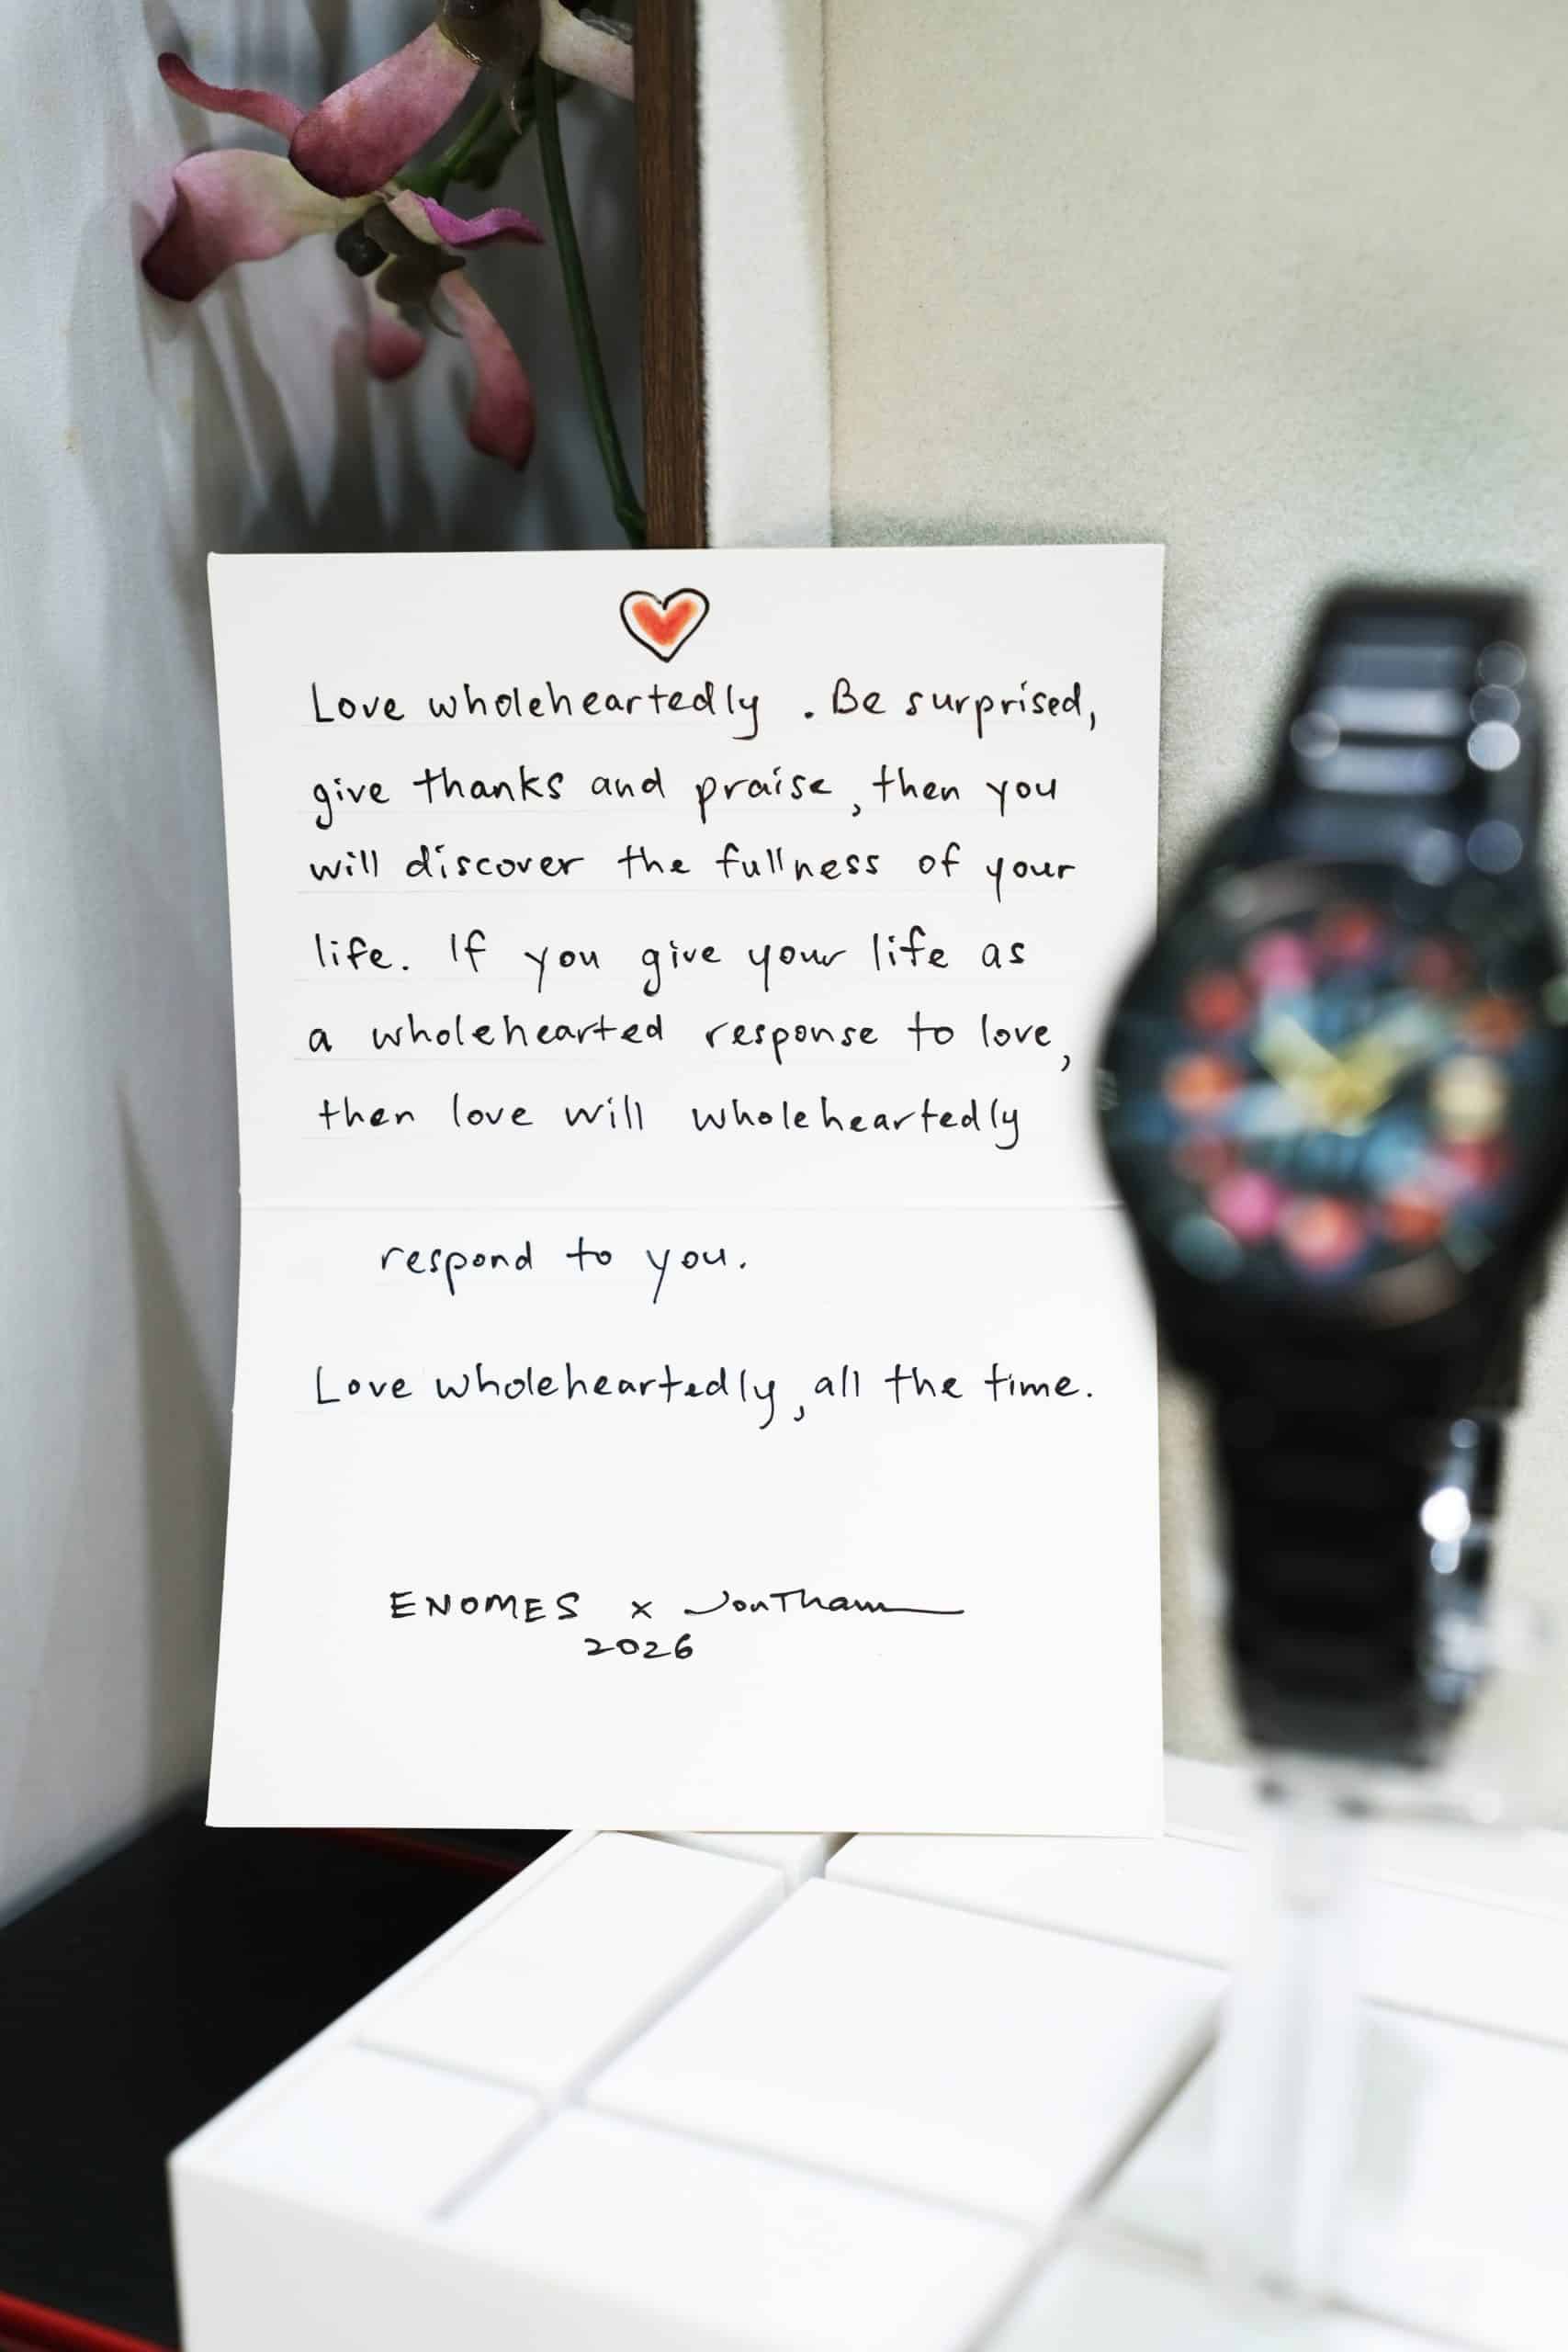 Love wholeheartedly. Be surprised,
give thanks and praise, then you
will discover the fullness of your
life. If you give your life as
a wholehearted response to love,
then love will wholeheartedly
respond to you.
Love wholeheartedly, all the time.
ENOMES x JonTham
2026